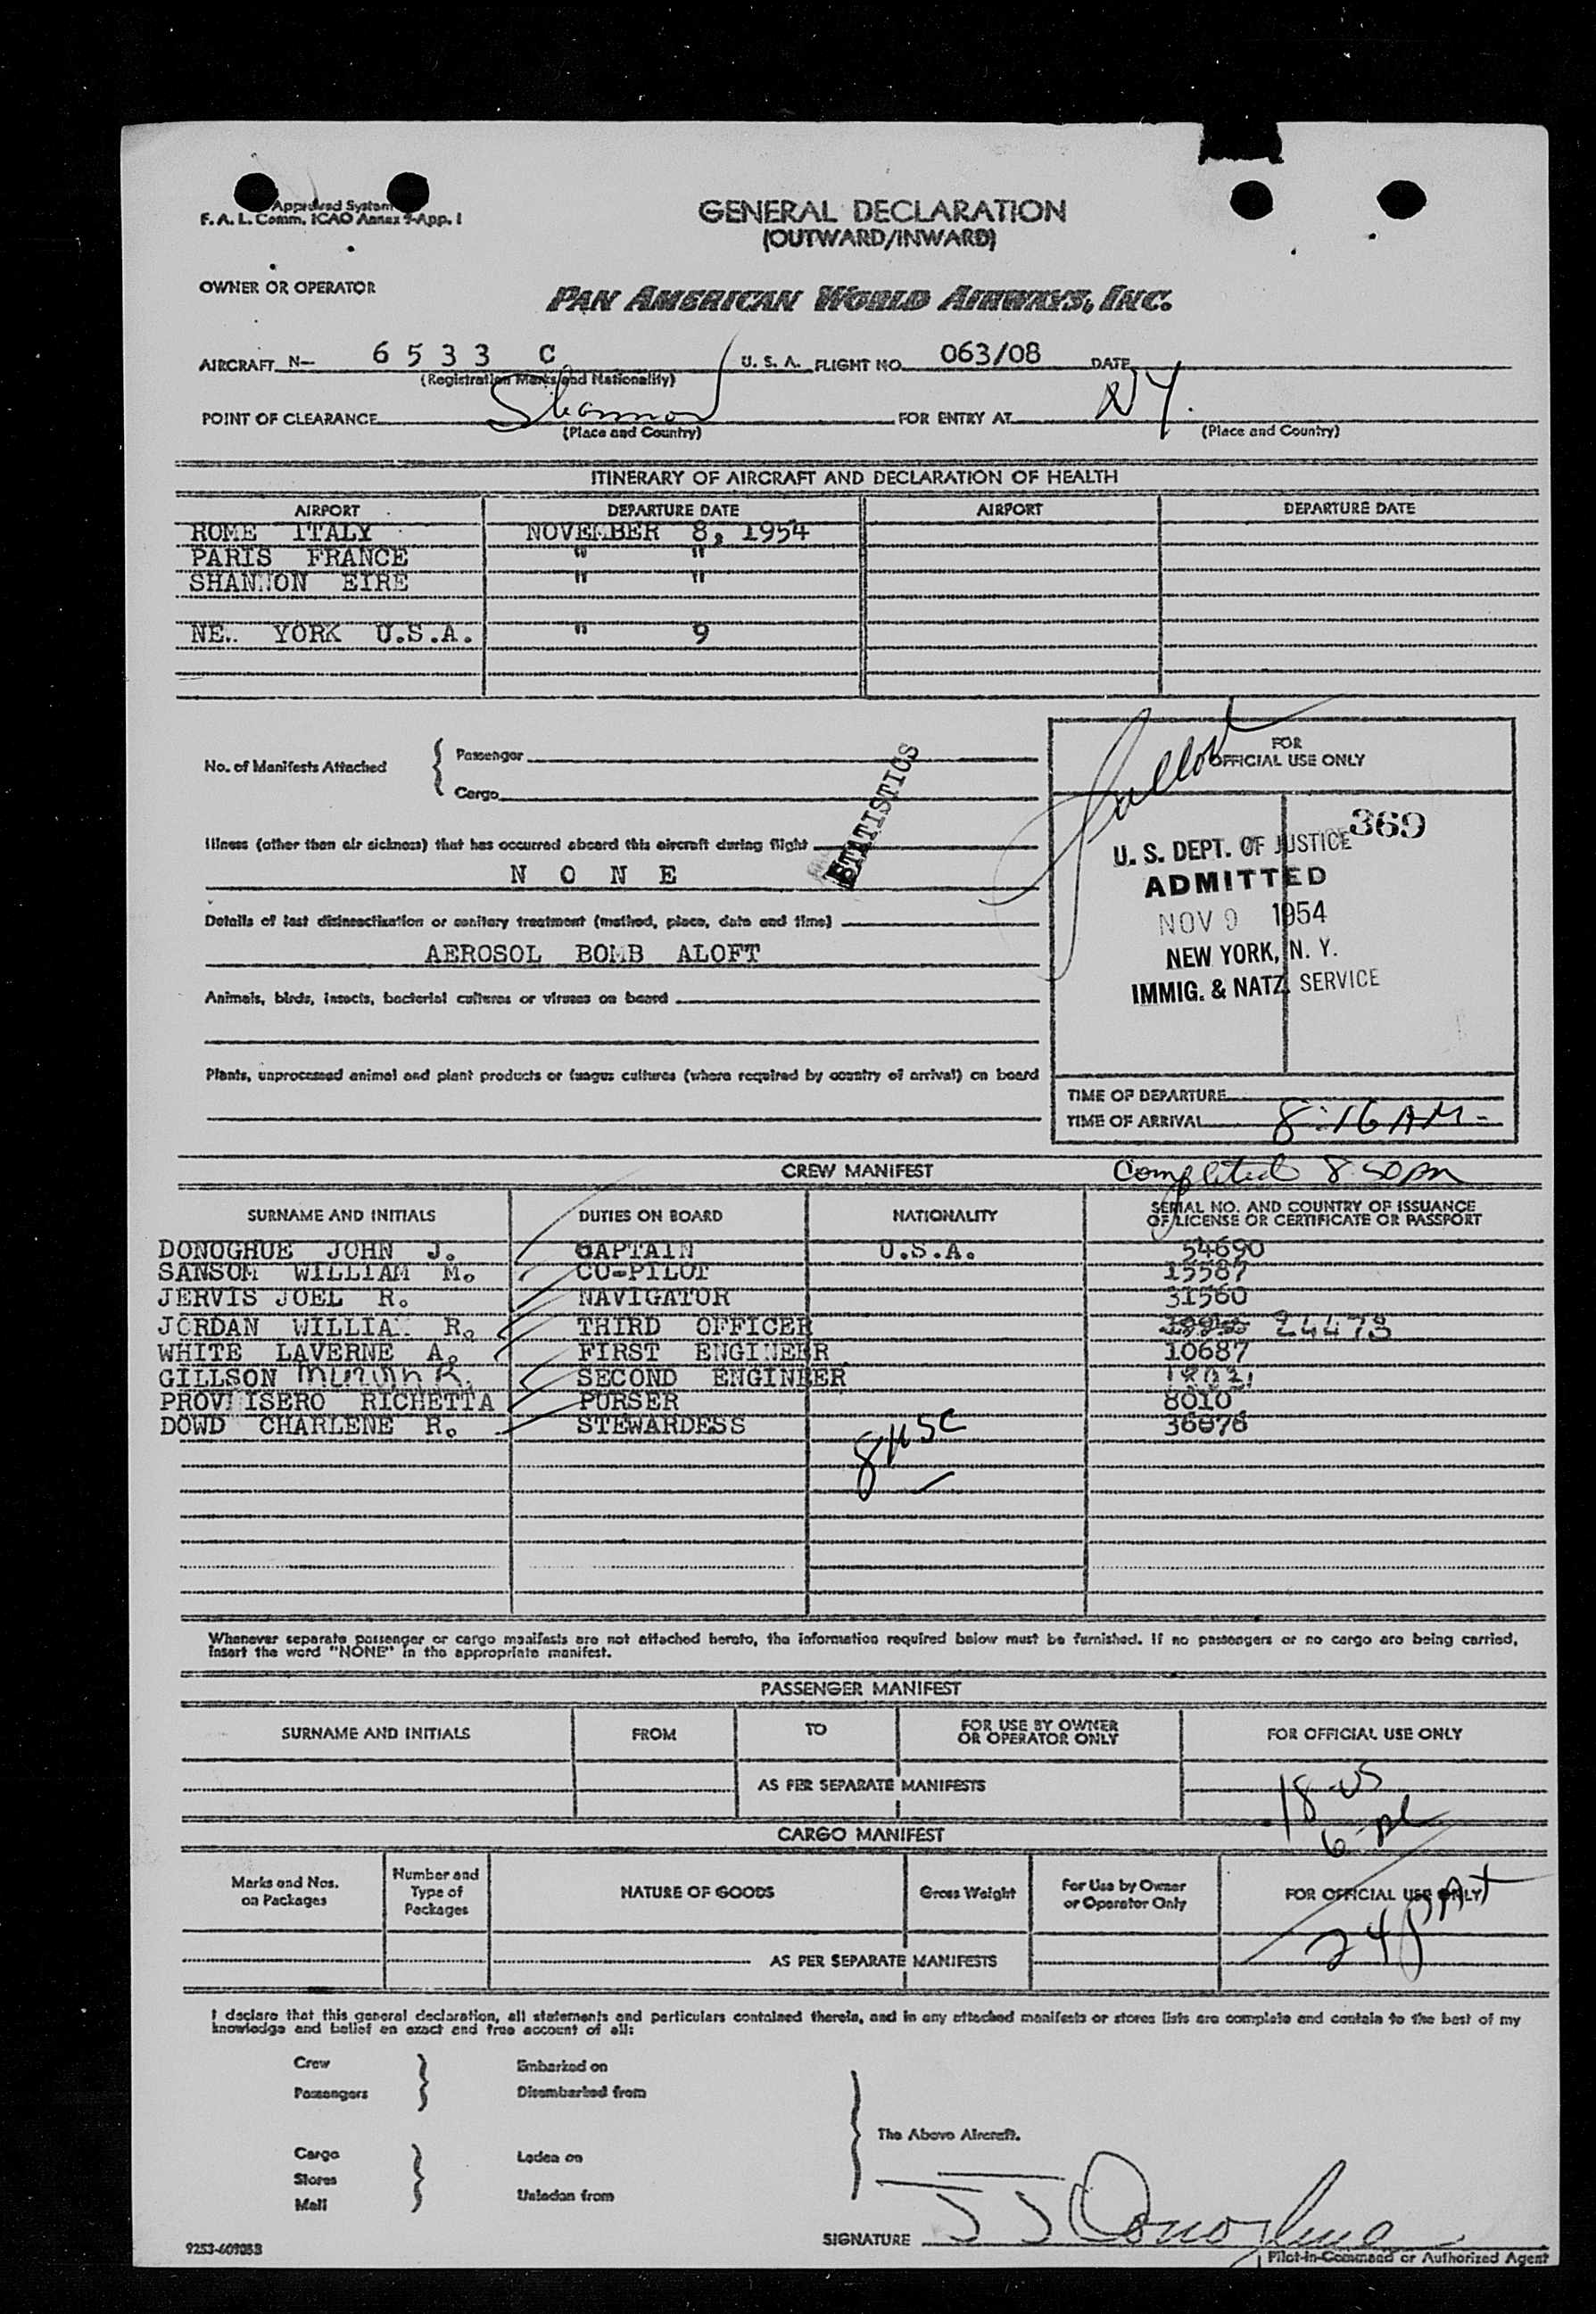 Approved System
F. A. L. Comm. ICAO Annex 9-App. 1
GENERAL DECLARATION
(OUTWARD/INWARD)
OWNER OR OPERATOR
PAN AMERICAN WORLD AIRWAYS, INC.
AIRCRAFT N- 6 5 3 3 C U. S. A. FLIGHT NO. 063/08 DATE
(Registration Marks and Nationality)
POINT OF CLEARANCE Shannon FOR ENTRY AT NY.
(Place and Country) (Place and Country)
ITINERARY OF AIRCRAFT AND DECLARATION OF HEALTH
AIRPORT DEPARTURE DATE AIRPORT DEPARTURE DATE
ROME ITALY NOVEMBER 8, 1954
PARIS FRANCE " "
SHANNON EIRE " "
NE.. YORK U.S.A. " 9
No. of Manifests Attached { Passenger
Cargo
STATISTICS
Illness (other than air sickness) that has occurred aboard this aircraft during flight
N O N E
Details of last disinsectization or sanitary treatment (method, place, date and time)
AEROSOL BOMB ALOFT
Animals, birds, insects, bacterial cultures or viruses on board
Plants, unprocessed animal and plant products or fungus cultures (where required by country of arrival) on board
FOR
OFFICIAL USE ONLY
369
U. S. DEPT. OF JUSTICE
ADMITTED
NOV 9 1954
NEW YORK, N. Y.
IMMIG. & NATZ. SERVICE
TIME OF DEPARTURE
TIME OF ARRIVAL 8:16 AM-
CREW MANIFEST Completed 8 50 pm
SURNAME AND INITIALS DUTIES ON BOARD NATIONALITY SERIAL NO. AND COUNTRY OF ISSUANCE
OF LICENSE OR CERTIFICATE OR PASSPORT
DONOGHUE JOHN J. CAPTAIN U.S.A. 54690
SANSOM WILLIAM M. CO-PILOT 15587
JERVIS JOEL R. NAVIGATOR 31560
JORDAN WILLIA. R. THIRD OFFICER 24473
WHITE LAVERNE A. FIRST ENGINEER 10687
GILLSON R. SECOND ENGINEER
PROVI ISERO RICHETTA PURSER 8010
DOWD CHARLENE R. STEWARDESS 36078
8 USC
Whenever separate passenger or cargo manifests are not attached hereto, the information required below must be furnished. If no passengers or no cargo are being carried,
insert the word "NONE" in the appropriate manifest.
PASSENGER MANIFEST
SURNAME AND INITIALS FROM TO FOR USE BY OWNER
OR OPERATOR ONLY FOR OFFICIAL USE ONLY
AS PER SEPARATE MANIFESTS
18-US
6-
CARGO MANIFEST
Marks and Nos.
on Packages
Number and
Type of
Packages
NATURE OF GOODS
Gross Weight
For Use by Owner
or Operator Only
FOR OFFICIAL USE ONLY
24
AS PER SEPARATE MANIFESTS
I declare that this general declaration, all statements and particulars contained therein, and in any attached manifests or stores lists are complete and contain to the best of my
knowledge and belief an exact and true account of all:
Crew Embarked on
Passengers Disembarked from
The Above Aircraft.
Cargo Laden on
Stores
Mail Unladen from
SIGNATURE J J Donoghue
9253-609053 Pilot-in-Command or Authorized Agent